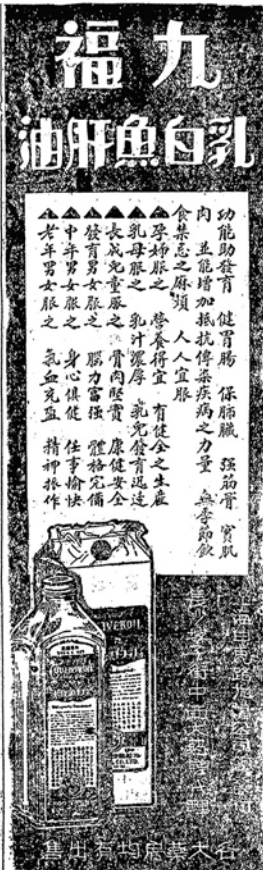 九福
乳白魚肝油
功能助發育 健胃腸 保肺臟 强筋骨 實肌
肉 並能增加抵抗傳染疾病之力量 無季節飲
食禁忌之麻煩 人人宜服
孕婦服之 營養得宜 有健全之生產
乳母服之 乳汁濃厚 乳兒發育迅速
長成兒童服之 骨肉堅實 康健安全
發育男女服之 腦力富强 體格完備
中年男女服之 身心俱健 任事愉快
老年男女服之 氣血充盈 精神振作
各大藥房均有出售